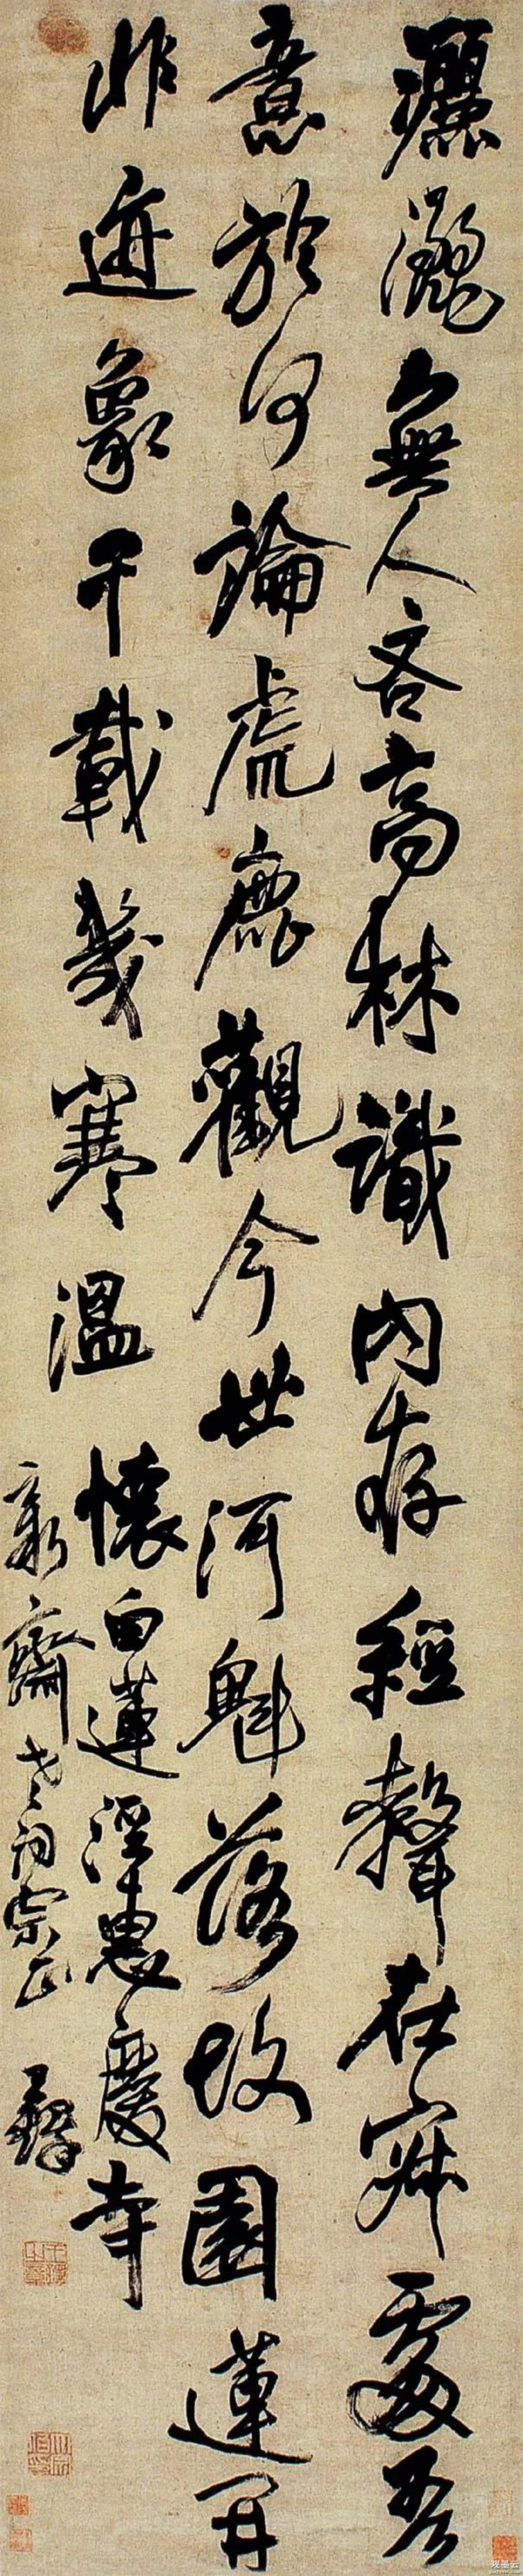 灑灑無人吝高林識內存經聲在寂處吾
意於何論虎鹿觀今世河魁落故園蓮開
非迹象千載幾寒溫 懷白蓮涇惠慶寺
齋老詞宗正 鐸
观墨云